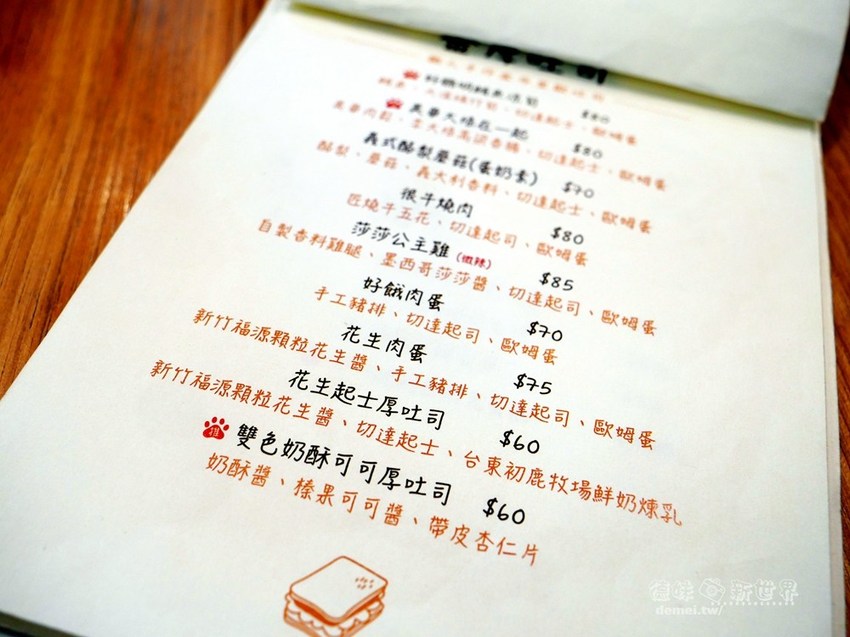 $80
美華大條在一起 $80
美華肉鬆、李大條高粱香腸、切達起士、歐姆蛋
義式酪梨蘑菇(蛋奶素) $70
酪梨、蘑菇、義大利香料、切達起士、歐姆蛋
很牛燒肉 $80
匠燒牛五花、切達起司、歐姆蛋
莎莎公主雞(微辣) $85
自製香料雞腿、墨西哥莎莎醬、切達起司、歐姆蛋
好餓肉蛋 $70
手工豬排、切達起司、歐姆蛋
花生肉蛋 $75
新竹福源顆粒花生醬、手工豬排、切達起司、歐姆蛋
花生起士厚吐司 $60
新竹福源顆粒花生醬、切達起士、台東初鹿牧場鮮奶煉乳
雙色奶酥可可厚吐司 $60
奶酥醬、榛果可可醬、帶皮杏仁片
食味新世界
demei.tw/